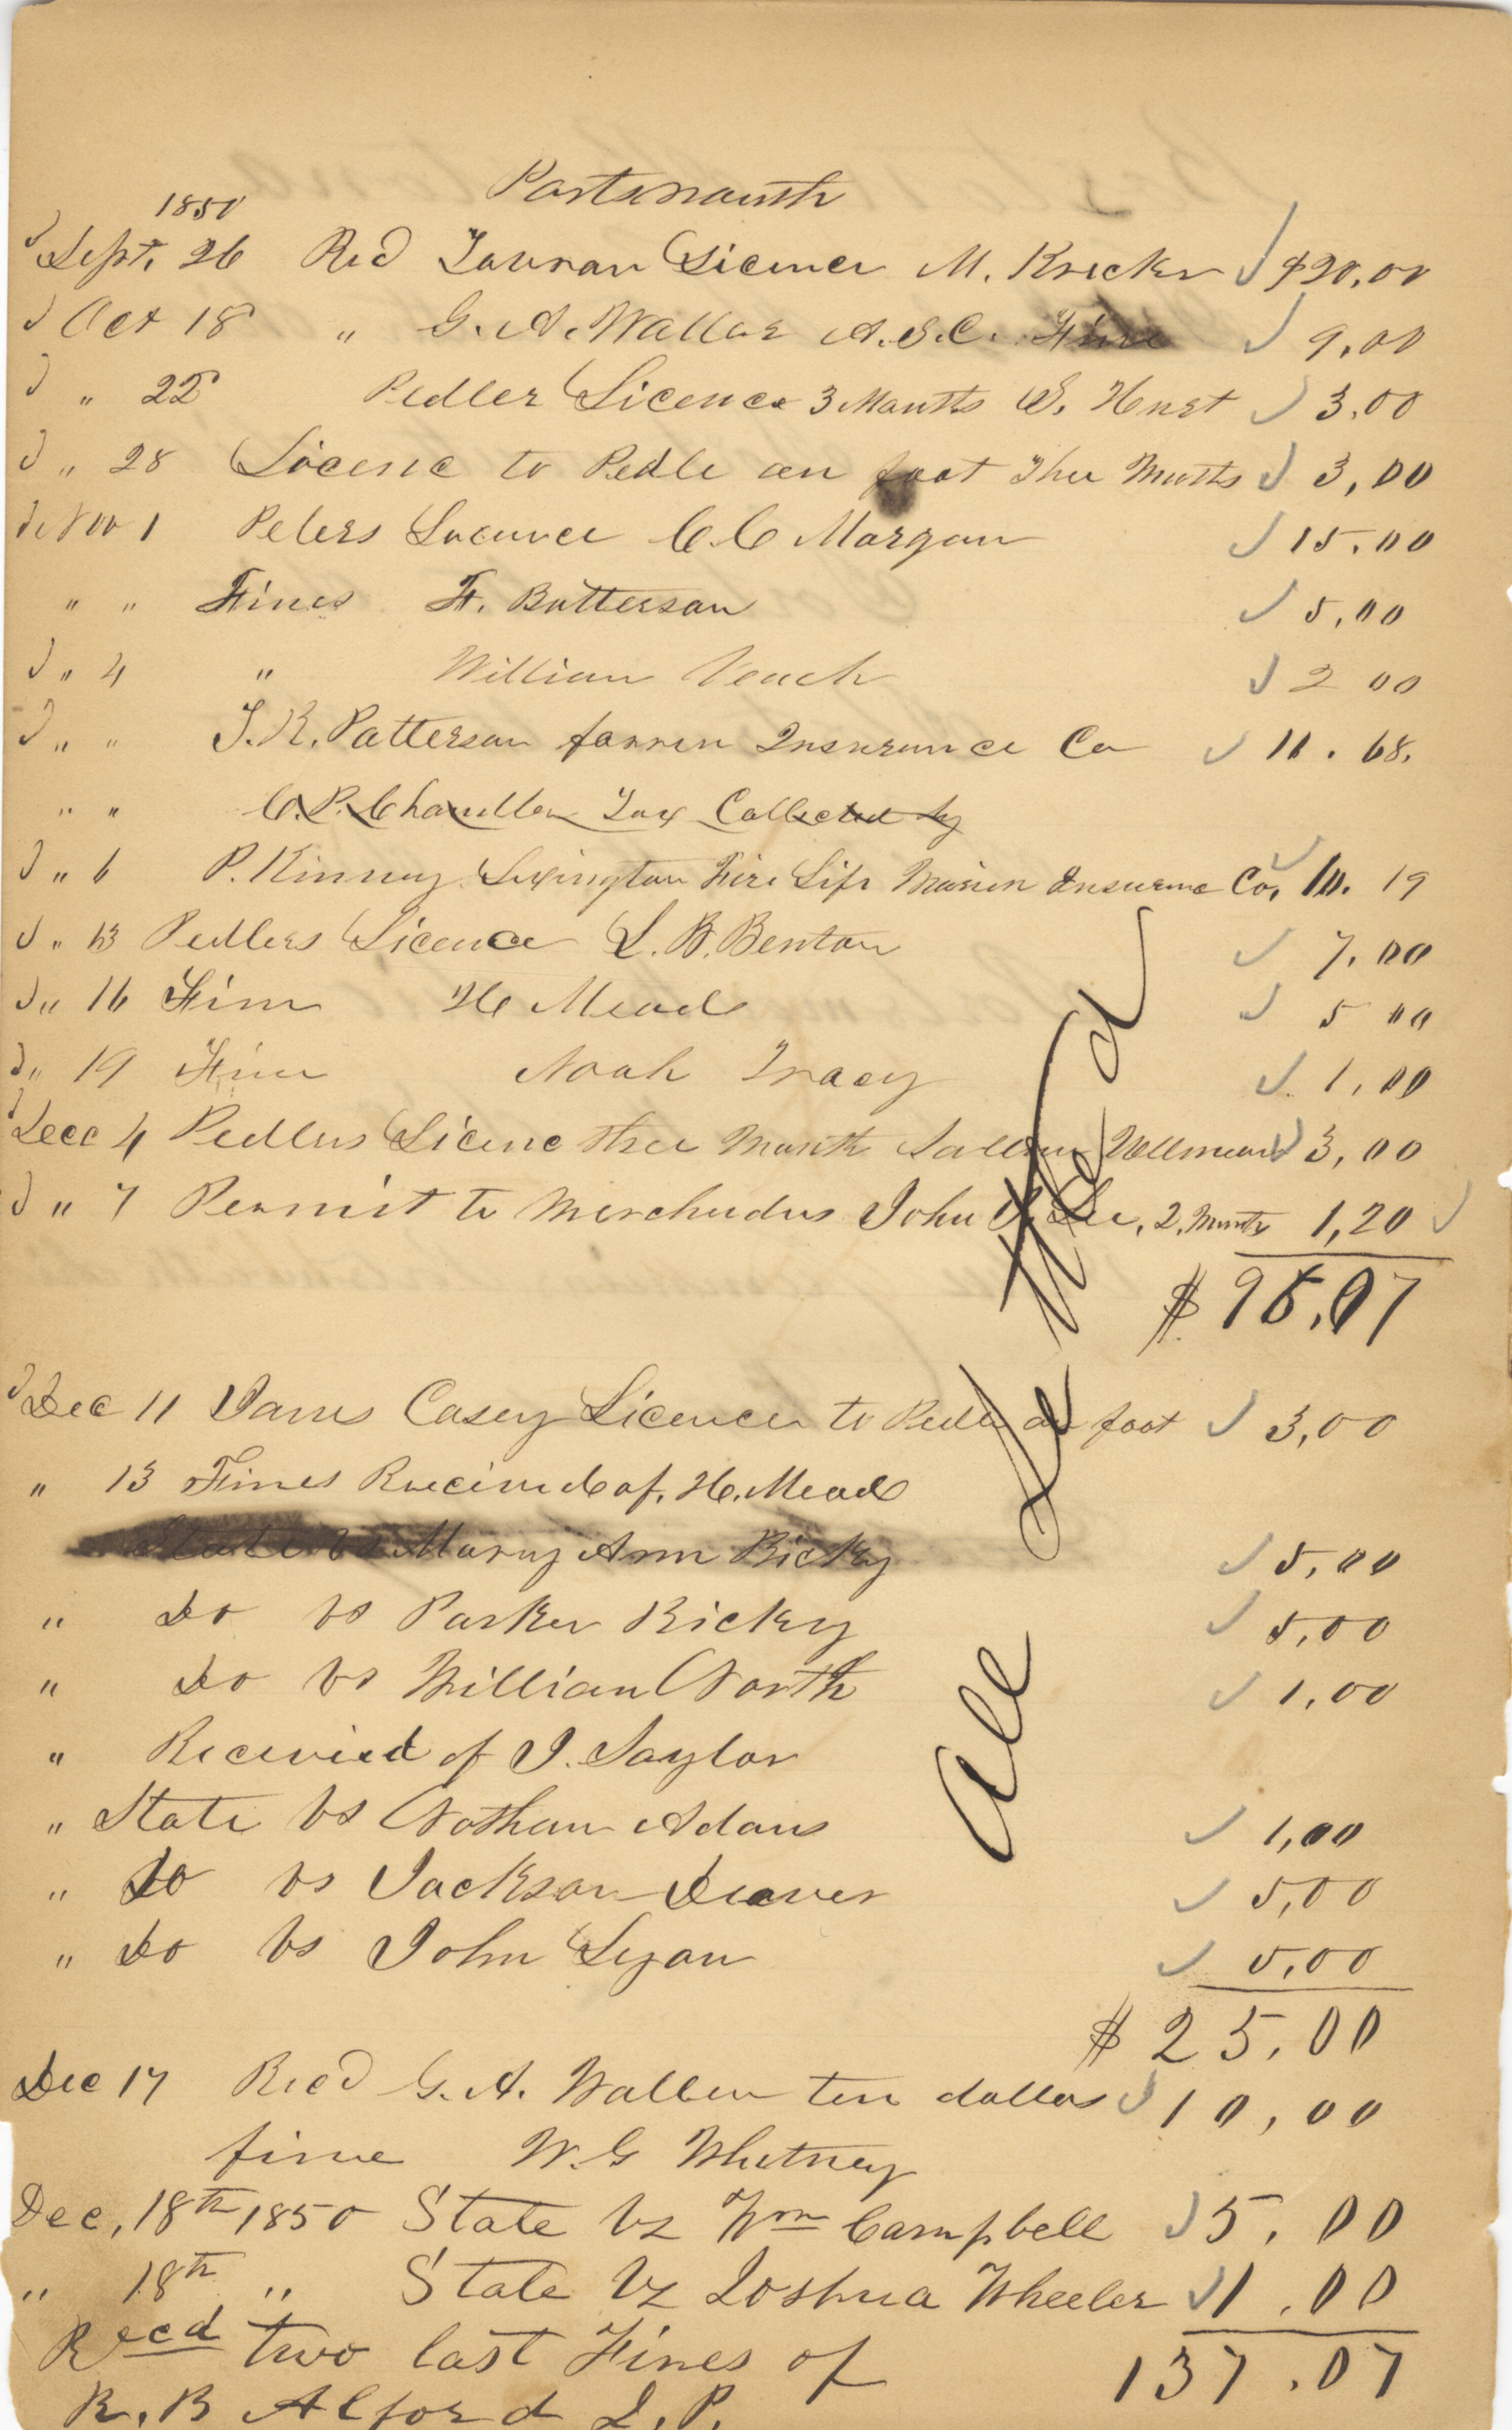 Portsmouth
1850
Sept. 26 Recd Tavran Licence M. Kricker $20.00
Oct 18 " G. A. Wallar A.S.C. Fine 9.00
" 22 Pedler Licence 3 Months S. Hurst 3.00
" 28 Licenc to Pedle on foot Thee Months 3,00
Nov 1 Pelers Licence C. C Morgan 15.00
" " Fines F. Butterson 5,00
" 4 " William Veach 2 00
" " J. R. Patterson farmer Insurance Co 11.68.
" " C. P. Chandler Tax Collected by
" 6 P. Kinney Lexington Fire Life Marien Insurence Co, 10.19
" 13 Pedlers Licence L. B. Benton 7.00
" 16 Fine H Mead 5 00
" 19 Fine Noah Tracy 1,00
Dec 4 Pedlers Licenc thee Month 3,00
" 7 Permit to Merchuders John Lee, 2, Months 1,20
$ 96.07
Dec 11 James Casey Licence to Pedle on foot 3,00
" 13 Fines Received of. H. Mead
State vs Mary Ann Ricky 5,00
" Do vs Parker Ricky 5,00
" Do vs William North 1,00
" Received of J. Taylor
" State vs Nathan Adams 1,00
" Do vs Jackson Deaver 5,00
" Do vs John Lyon 5.00
$ 25,00
Dec 17 Recd G. A. Waller ten dollars 10,00
fine W. G Whitney
Dec, 18th 1850 State Vs Wm Campbell 5.00
" 18th " State Vs Joshua Wheeler 1.00
Recd two last Fines of 137.07
R. B Alford J. P.
All Settled